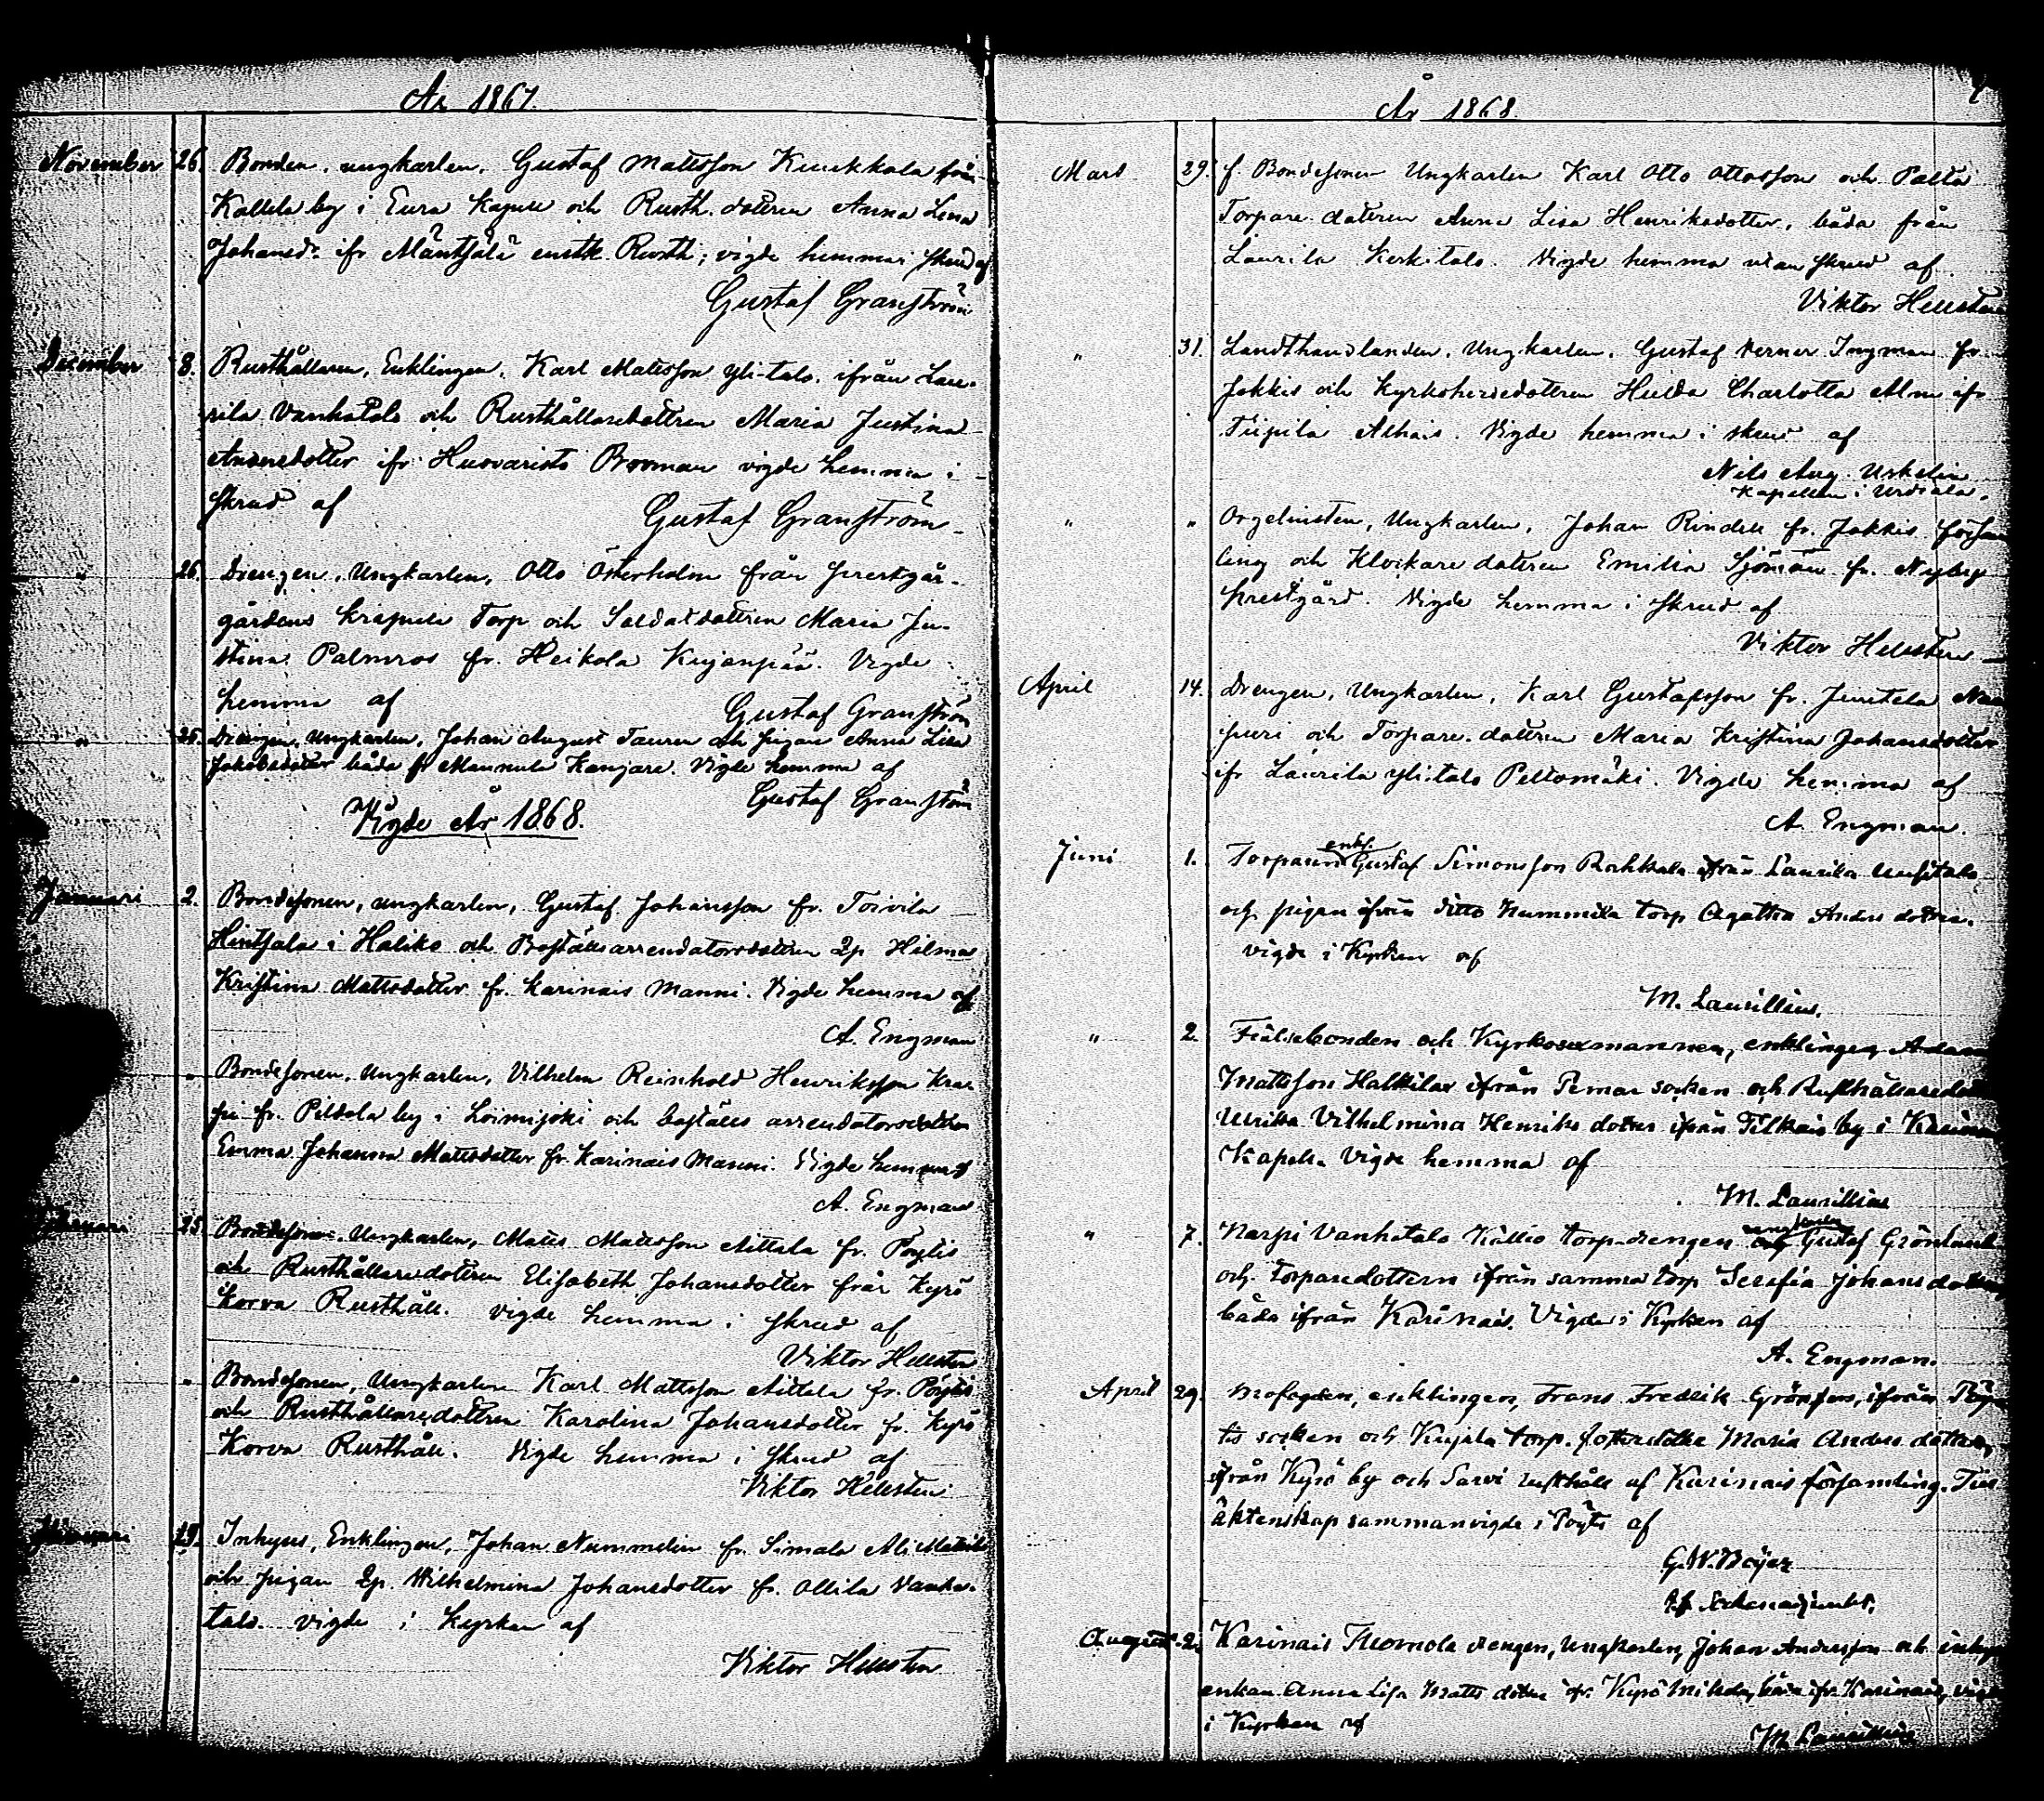 År 1867.
November 26. Bonden, ungkarlen, Gustaf Mattsson Kuukkala från
Kallela by i Eura Kapell och Rusth. dottren Anna Lena
Johansd:r ifr Mäntsälä enstk. Rusth; vigde hemma i skrud af
Gustaf Granström
December 8. Rusthållaren, Enklingen, Karl Mattsson Yli-talo, ifrån Lau-
rila Vanhatalo och Rusthållaredottren Maria Justina
Andersdotter ifr. Huovaristo Broman vigde hemma i
skrud af Gustaf Granström
" 26. Drengen, Ungkarlen, Otto Österholm från prestgår-
gårdens Krapula Torp och Soldatdottren Maria Ju-
stina Palmros fr. Heikola Kujanpää. Vigde
hemma af Gustaf Granström
" 26. Drengen, Ungkarlen, Johan August Tauren och pigan Anna Lisa
Jakobsdotter båda fr Mannula Kangare. Vigde hemma af
Gustaf Granström
Vigde År 1868.
Januari 2. Bondesonen, ungkarlen, Gustaf Johansson fr. Toivila
Hintsala i Haliko och Boställsarrendatorsdottren Qp Hilma
Kristina Mattsdotter fr. Karinais Manni. Vigde hemma af
A. Engman
" Bondesonen, Ungkarlen, Vilhelm Reinhold Henriksson Krap
pi fr. Peldola by i Loimijoki och boställs arrendatorsdottren
Emma Johanna Mattsdotter fr. Karinais Manni. Vigde hemma af
A. Engman
25. Bondesonen, Ungkarlen, Matts Mattsson Aittala fr. Pöytis
och Rusthållaredottren Elisabeth Johansdotter från Kyrö
Korva Rusthåll. Vigde hemma i skrud af
Viktor Hellsten
" " Bondesonen, Ungkarlen Karl Mattsson Aittala fr. Pöytis
och Rusthållaredottren Karolina Johansdotter fr. Kyrö
Korva Rusthåll. Vigde hemma i skrud af
Viktor Hellsten
Inhyses, Enklingen, Johan Nummelin fr. Simala Ali
och pigan Qp. Wilhelmina Johansdotter fr. Ollila Vanha-
talo. Vigde i Kyrkan af
Viktor Hellsten
År 1868.
Mars 29. f. Bondesonen Ungkarlen Karl Otto Ottosson och Palta
Torpare dottren Anna Lisa Henriksdotter, båda från
Laurila Kerkitalo. Vigde hemma utan skrud af
Viktor Hellsten
" 31. Landthandlanden, Ungkarlen, Gustaf Verner Ingman fr.
Jokkis och Kyrkoherdedottren Hulda Charlotta Alm ifr
Tiipila Alhais. Vigde hemma i skrud af
Nils Aug. Uskelin
Kapellan i Urdiala.
" " Orgelnisten, Ungkarlen, Johan Rindell fr. Jokkis försam
ling och Klockare dottren Emilia Sjöman fr. Nyby
prestgård. Vigde hemma i skrud af
Viktor Hellsten
April 14. Drengen, Ungkarlen, Karl Gustafsson fr. Juntela
puri och Torpare dottren Maria Kristina Johansdotter
ifr Laurila Yli-talo Peltomäki. Vigde hemma af
A. Engman.
Juni 1. Torparen enkl. Gustaf Simonsson Rahkala ifrån Laurila Uusitalo
och pigan ifrån ditto Nummila torp Agatha Anders dotter.
vigde i Kyrkan af
M. Laurillius.
" 2. Frälsebonden och Kyrkosexmannen, enklingen Adam
Mattsson Halkilax ifrån Pemar socken och Rusthållaredot
Ulrika Vilhelmina Henriks dotter ifrån Tilkais by i Karinais
Kapell. Vigde hemma af
M. Laurillius
" 7. Narpi Vanhatalo Kallio torp drengen ungkarlen Gustaf Grönlund
och torparedottern ifrån samma torp Serafia Johans dotter
båda ifrån Karinais. Vigde i Kyrkan af
A. Engman.
April 29. Mofogden, enklingen, Frans Fredrik Grönfors, ifrån Pöy
tis socken och Kujala torp. Maria Anders dotter,
ifrån Kyrö by och Sarvi rusthåll af Karinais församling. Till
äktenskap sammanvigde i Pöyts af
G. W. Boijer
Sockenadjunkt.
August 2. Karinais Thomola drengen, Ungkarlen, Johan Andersson och inhys
enkan Anna Lisa Matts dotter ifr. Kyrö Mikola, båda ifr. Karinais, vigde
i Kyrkan af
M. Laurillius